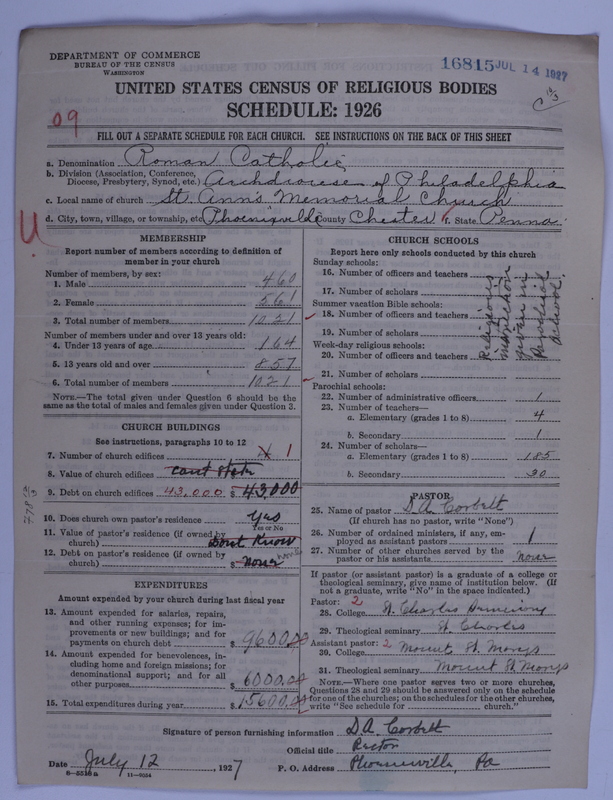 DEPARTMENT OF COMMERCE
BUREAU OF THE CENSUS
WASHINGTON
16815 JUL 14 1927
UNITED STATES CENSUS OF RELIGIOUS BODIES
SCHEDULE: 1926
09
FILL OUT A SEPARATE SCHEDULE FOR EACH CHURCH. SEE INSTRUCTIONS ON THE BACK OF THIS SHEET
a. Denomination Roman Catholic
b. Division (Association, Conference, Diocese, Presbytery, Synod, etc.) Archdiocese of Philadelphia
c. Local name of church St. Ann's Memorial Church
d. City, town, village, or township, etc. Phoenixville County Chester f. State Penna.
MEMBERSHIP
Report number of members according to definition of
member in your church
Number of members, by sex:
1. Male 460
2. Female 561
3. Total number of members 1021
Number of members under and over 13 years old:
4. Under 13 years of age 164
5. 13 years old and over 857
6. Total number of members 1021
NOTE.—The total given under Question 6 should be the
same as the total of males and females given under Question 3.
CHURCH BUILDINGS
See instructions, paragraphs 10 to 12
7. Number of church edifices 1
8. Value of church edifices cant state
9. Debt on church edifices 43,000 $ 43,000
10. Does church own pastor's residence Yes
Yes or No
11. Value of pastor's residence (if owned by
church) Dont Know
12. Debt on pastor's residence (if owned by
church) $ none
EXPENDITURES
Amount expended by your church during last fiscal year
13. Amount expended for salaries, repairs,
and other running expenses; for im-
provements or new buildings; and for
payments on church debt $ 9600.00
14. Amount expended for benevolences, in-
cluding home and foreign missions; for
denominational support; and for all
other purposes $ 6000.00
15. Total expenditures during year $ 15600.00
CHURCH SCHOOLS
Report here only schools conducted by this church
Sunday schools:
16. Number of officers and teachers
17. Number of scholars
Summer vacation Bible schools:
18. Number of officers and teachers
19. Number of scholars
Week-day religious schools:
20. Number of officers and teachers
21. Number of scholars
Religious
instruction
given in
Parochial
School.
Parochial schools:
22. Number of administrative officers 1
23. Number of teachers—
a. Elementary (grades 1 to 8) 4
b. Secondary 1
24. Number of scholars—
a. Elementary (grades 1 to 8) 185
b. Secondary 30
PASTOR
25. Name of pastor D.A. Corbett
(If church has no pastor, write "None")
26. Number of ordained ministers, if any, em-
ployed as assistant pastors 1
27. Number of other churches served by the
pastor or his assistants none
If pastor (or assistant pastor) is a graduate of a college or
theological seminary, give name of institution below. (If
not a graduate, write "No" in the space indicated.)
Pastor: 2
28. College St. Charles Seminary
29. Theological seminary St. Charles
Assistant pastor: 2
30. College Mount St. Marys
31. Theological seminary Mount St. Marys
NOTE.—Where one pastor serves two or more churches,
Questions 28 and 29 should be answered only on the schedule
for one of the churches; on the schedules for the other churches,
write "See schedule for church."
Signature of person furnishing information D.A. Corbett
Official title Rector
Date July 12, 1927 P. O. Address Phoenixville, Pa
8—5510a 11—9054